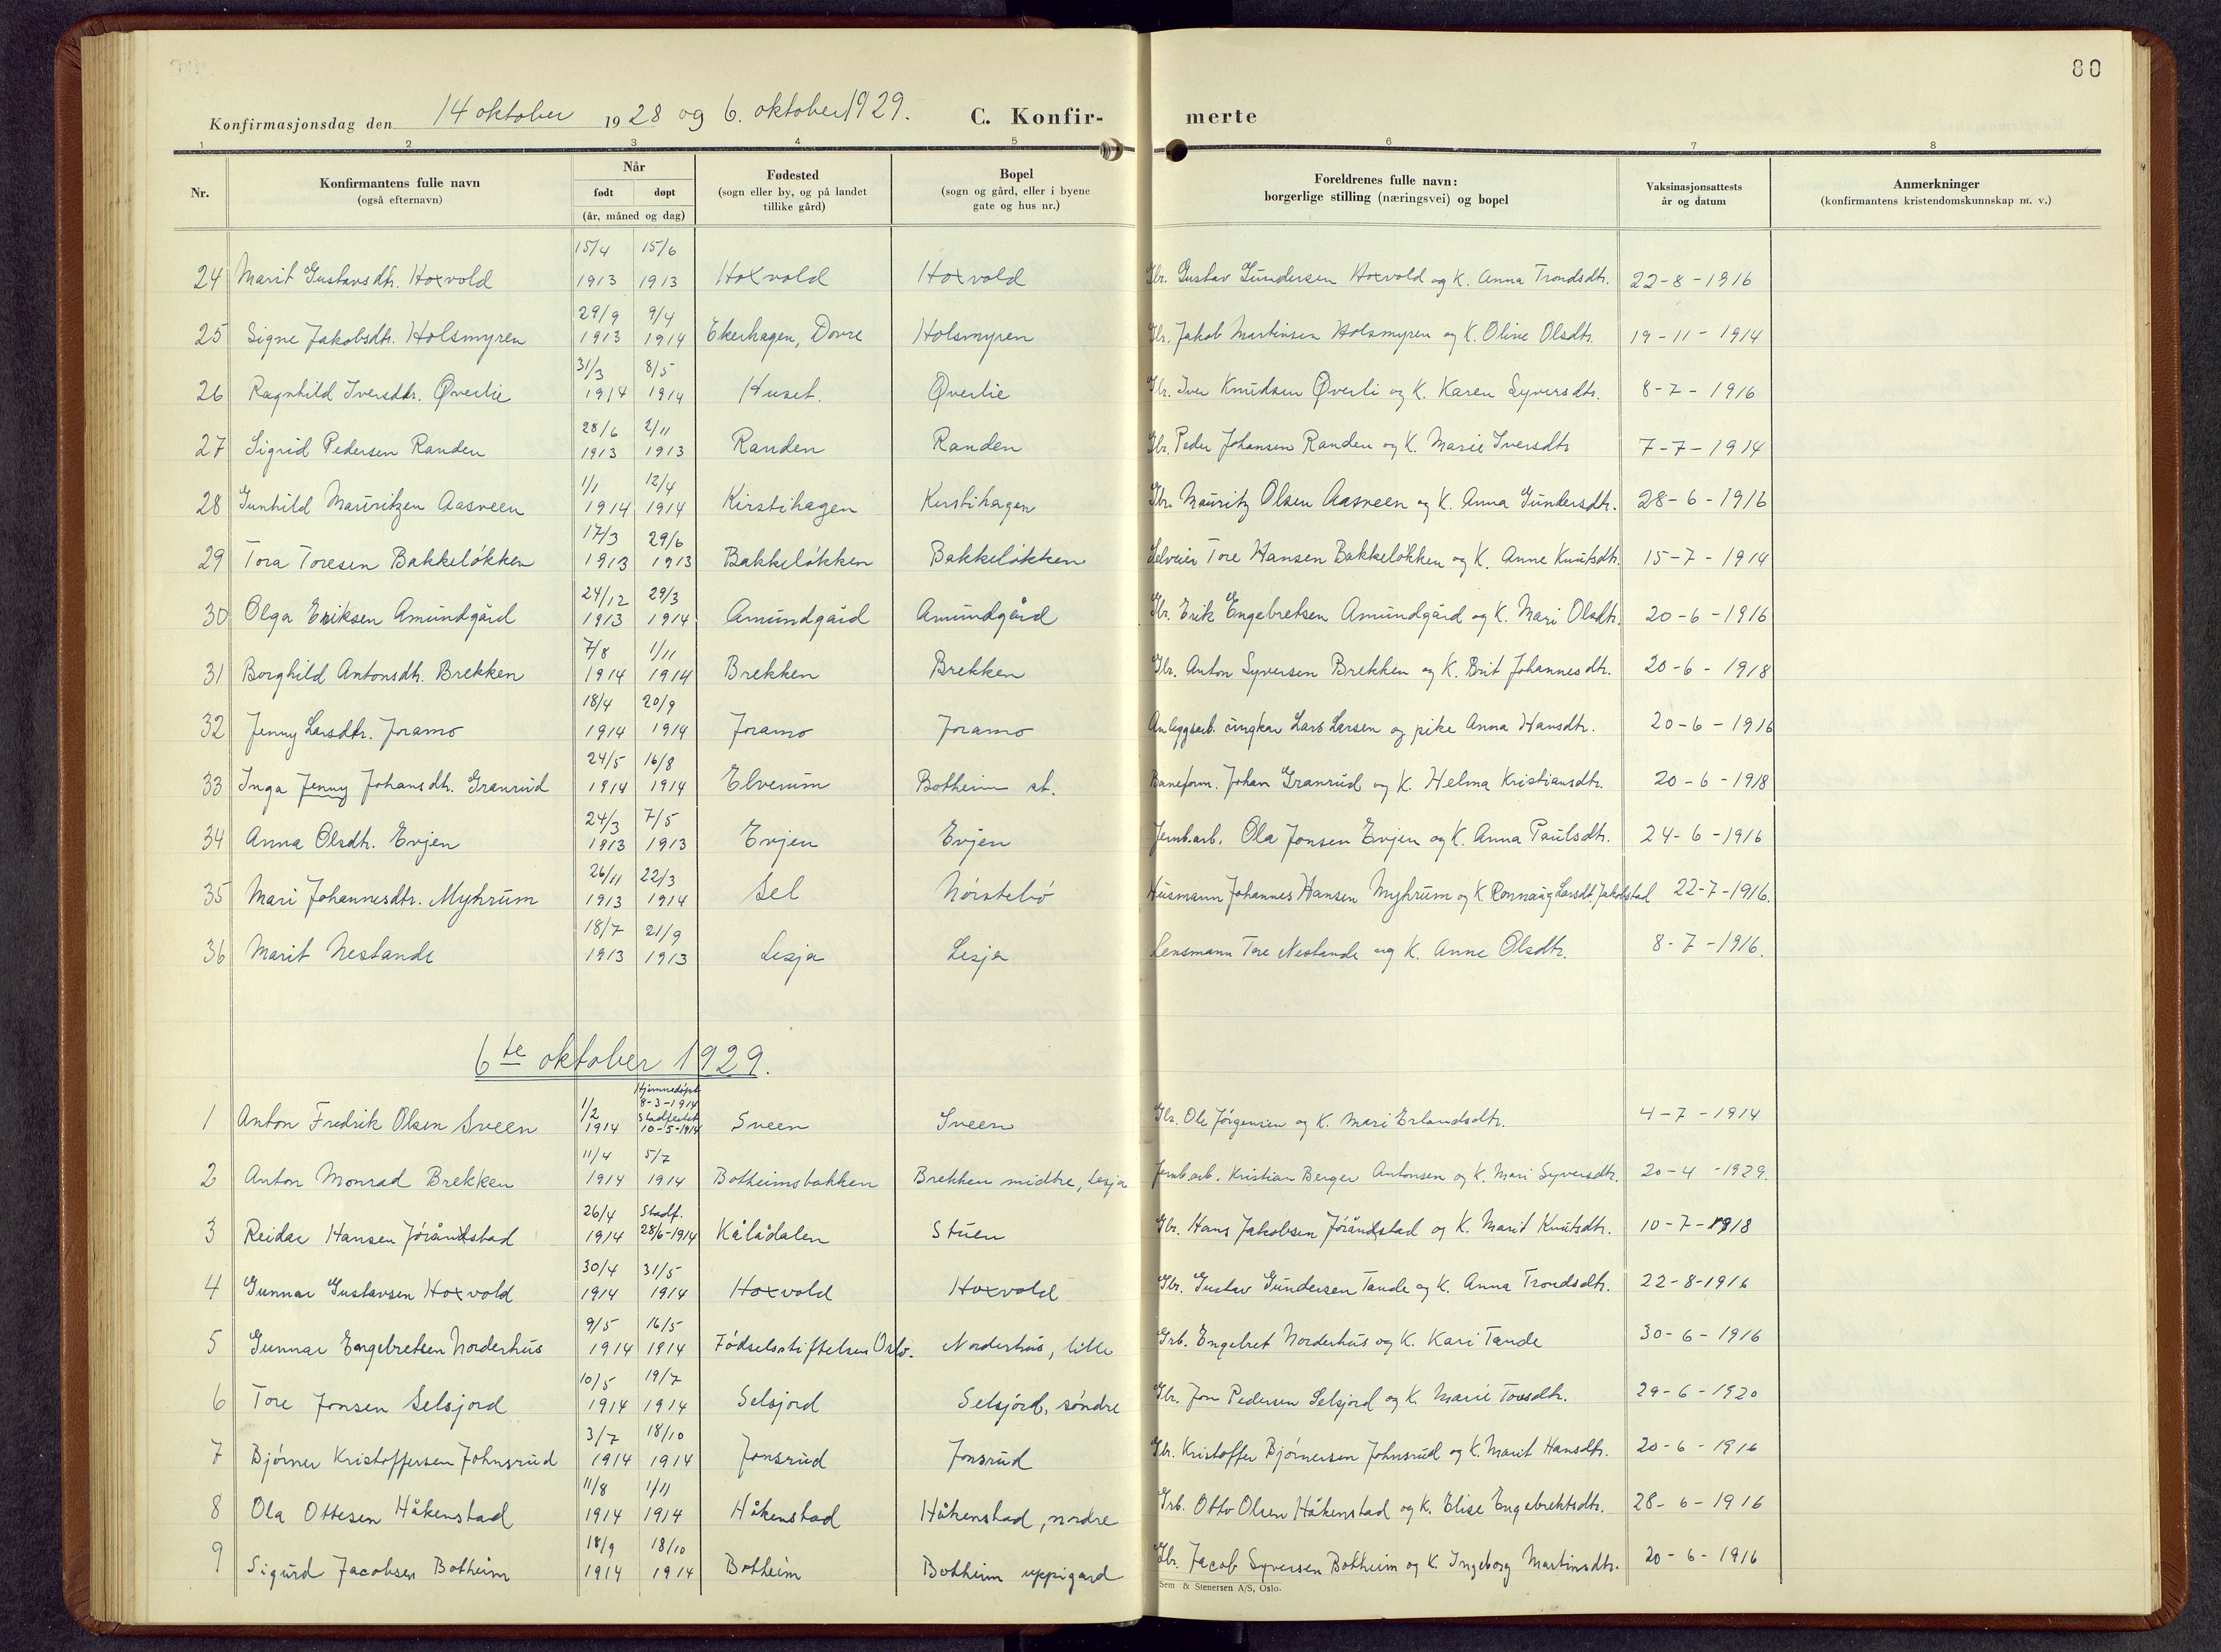 80
Konfirmasjonsdag den 14 oktober 1928 og 6. oktober 1929. C. Konfir- merte
1 2 3 4 5 6 7 8
Nr. Konfirmantens fulle navn (også efternavn) Når født døpt (år, måned og dag) Fødested (sogn eller by, og på landet tillike gård) Bopel (sogn og gård, eller i byene gate og hus nr.) Foreldrenes fulle navn: borgerlige stilling (næringsvei) og bopel Vaksinasjonsattests år og datum Anmerkninger (konfirmantens kristendomskunnskap m. v.)
24 Marit Gustavsdtr. Hoxvold 15/4 1913 15/6 1913 Hoxvold Hoxvold Gbr. Gustav Gundersen Hoxvold og K. Anna Trondsdtr. 22-8-1916
25 Signe Jakobsdtr. Holsmyren 29/9 1913 9/4 1914 Ekerhagen, Dovre Holsmyren Gbr. Jakob Martinsen Holsmyren og K. Oline Olsdtr. 19-11-1914
26 Ragnhild Iversdtr. Øverlie 31/3 1914 8/5 1914 Huset. Øverlie Gbr. Iver Knudsen Øverli og K. Karen Syversdtr. 8-7-1916
27 Sigrid Pedersen Randen 28/6 1913 2/11 1913 Randen Randen Gbr. Peder Johansen Randen og K. Marie Iversdtr 7-7-1914
28 Gunhild Mauritzen Aasveen 1/1 1914 12/4 1914 Kirstihagen Kirstihagen Gbr. Mauritz Olsen Aasveen og K. Anna Gundersdtr. 28-6-1916
29 Tora Toresen Bakkeløkken 17/3 1913 29/6 1913 Bakkeløkken Bakkeløkken Selveier Tore Hansen Bakkeløkken og K. Anne Knutsdtr. 15-7-1914
30 Olga Eriksen Amundgård 24/12 1913 29/3 1914 Amundgård Amundgård Gbr. Erik Engebretsen Amundgård og K. Mari Olsdtr. 20-6-1916
31 Borghild Antonsdtr. Brekken 7/8 1914 1/11 1914 Brekken Brekken Gbr. Anton Syversen Brekken og K. Brit Johannesdtr. 20-6-1918
32 Jenny Larsdtr. Joramo 18/4 1914 20/9 1914 Joramo Joramo Anleggsarb. ungkar Lars Larsen og pike Anna Hansdtr. 20-6-1916
33 Inga Jenny Johansdtr. Granrud 24/5 1914 16/8 1914 Elverum Botheim st. Baneform. Johan Granrud og K. Helma Kristiansdtr. 20-6-1918
34 Anna Olsdtr. Evjen 24/3 1913 7/5 1913 Evjen Evjen Jernb.arb. Ola Jonsen Evjen og K. Anna Paulsdtr. 24-6-1916
35 Mari Johannesdtr. Myhrum 26/11 1913 22/3 1914 Sel Nørstebø Husmann Johannes Hansen Myhrum og K Ronnaug Larsdt. Jakobstad 22-7-1916.
36 Marit Nestande 18/7 1913 21/9 1913 Lesja Lesja Lensmann Tore Nestande og K. Anne Olsdtr. 8-7-1916.
6te oktober 1929.
1 Anton Fredrik Olsen Sveen 1/2 1914 Hjemmedøpt 8-3-1914 Stadfestet 10-5-1914 Sveen Sveen Gbr. Ole Jørgensen og K. Mari Erlandsdtr. 4-7-1914
2 Anton Monrad Brekken 11/4 1914 5/7 1914 Botheimsbakken Brekken midtre, Lesja Jernb.arb. Kristian Berger Antonsen og K. Mari Syversdtr. 20-4-1929.
3 Reidar Hansen Jøråndstad 26/4 1914 Stadf. 28/6-1914 Kålådalen Stuen Gbr. Hans Jakobsen Jøråndstad og K. Marit Knutsdtr. 10-7-1918
4 Gunnar Gustavsen Hoxvold 30/4 1914 31/5 1914 Hoxvold Hoxvold Gbr. Gustav Gundersen Tande og K. Anna Trondsdtr. 22-8-1916
5 Gunnar Engebretsen Norderhus 9/5 1914 16/5 1914 Fødselsstiftelsen Oslo. Norderhus, lille Grb. Engebret Norderhus og K. Kari Tande 30-6-1916
6 Tore Jonsen Selsjord 10/5 1914 19/7 1914 Selsjord Selsjord, søndre Gbr. Jon Pedersen Selsjord og K. Marie Toresdtr. 29-6-1920
7 Bjørner Kristoffersen Johnsrud 3/7 1914 18/10 1914 Jonsrud Jonsrud Gbr. Kristoffer Bjørnersen Johnsrud og K. Marit Hansdtr. 20-6-1916
8 Ola Ottesen Håkenstad 11/8 1914 1/11 1914 Håkenstad Håkenstad, nordre Grb. Otto Olsen Håkenstad og K. Elise Engebrektsdtr. 28-6-1916
9 Sigurd Jacobsen Botheim 18/9 1914 18/10 1914 Botheim Botheim uppigard Gbr. Jacob Syversen Botheim og K. Ingeborg Martinsdtr. 20-6-1916
Sem & Stenersen A/S, Oslo.